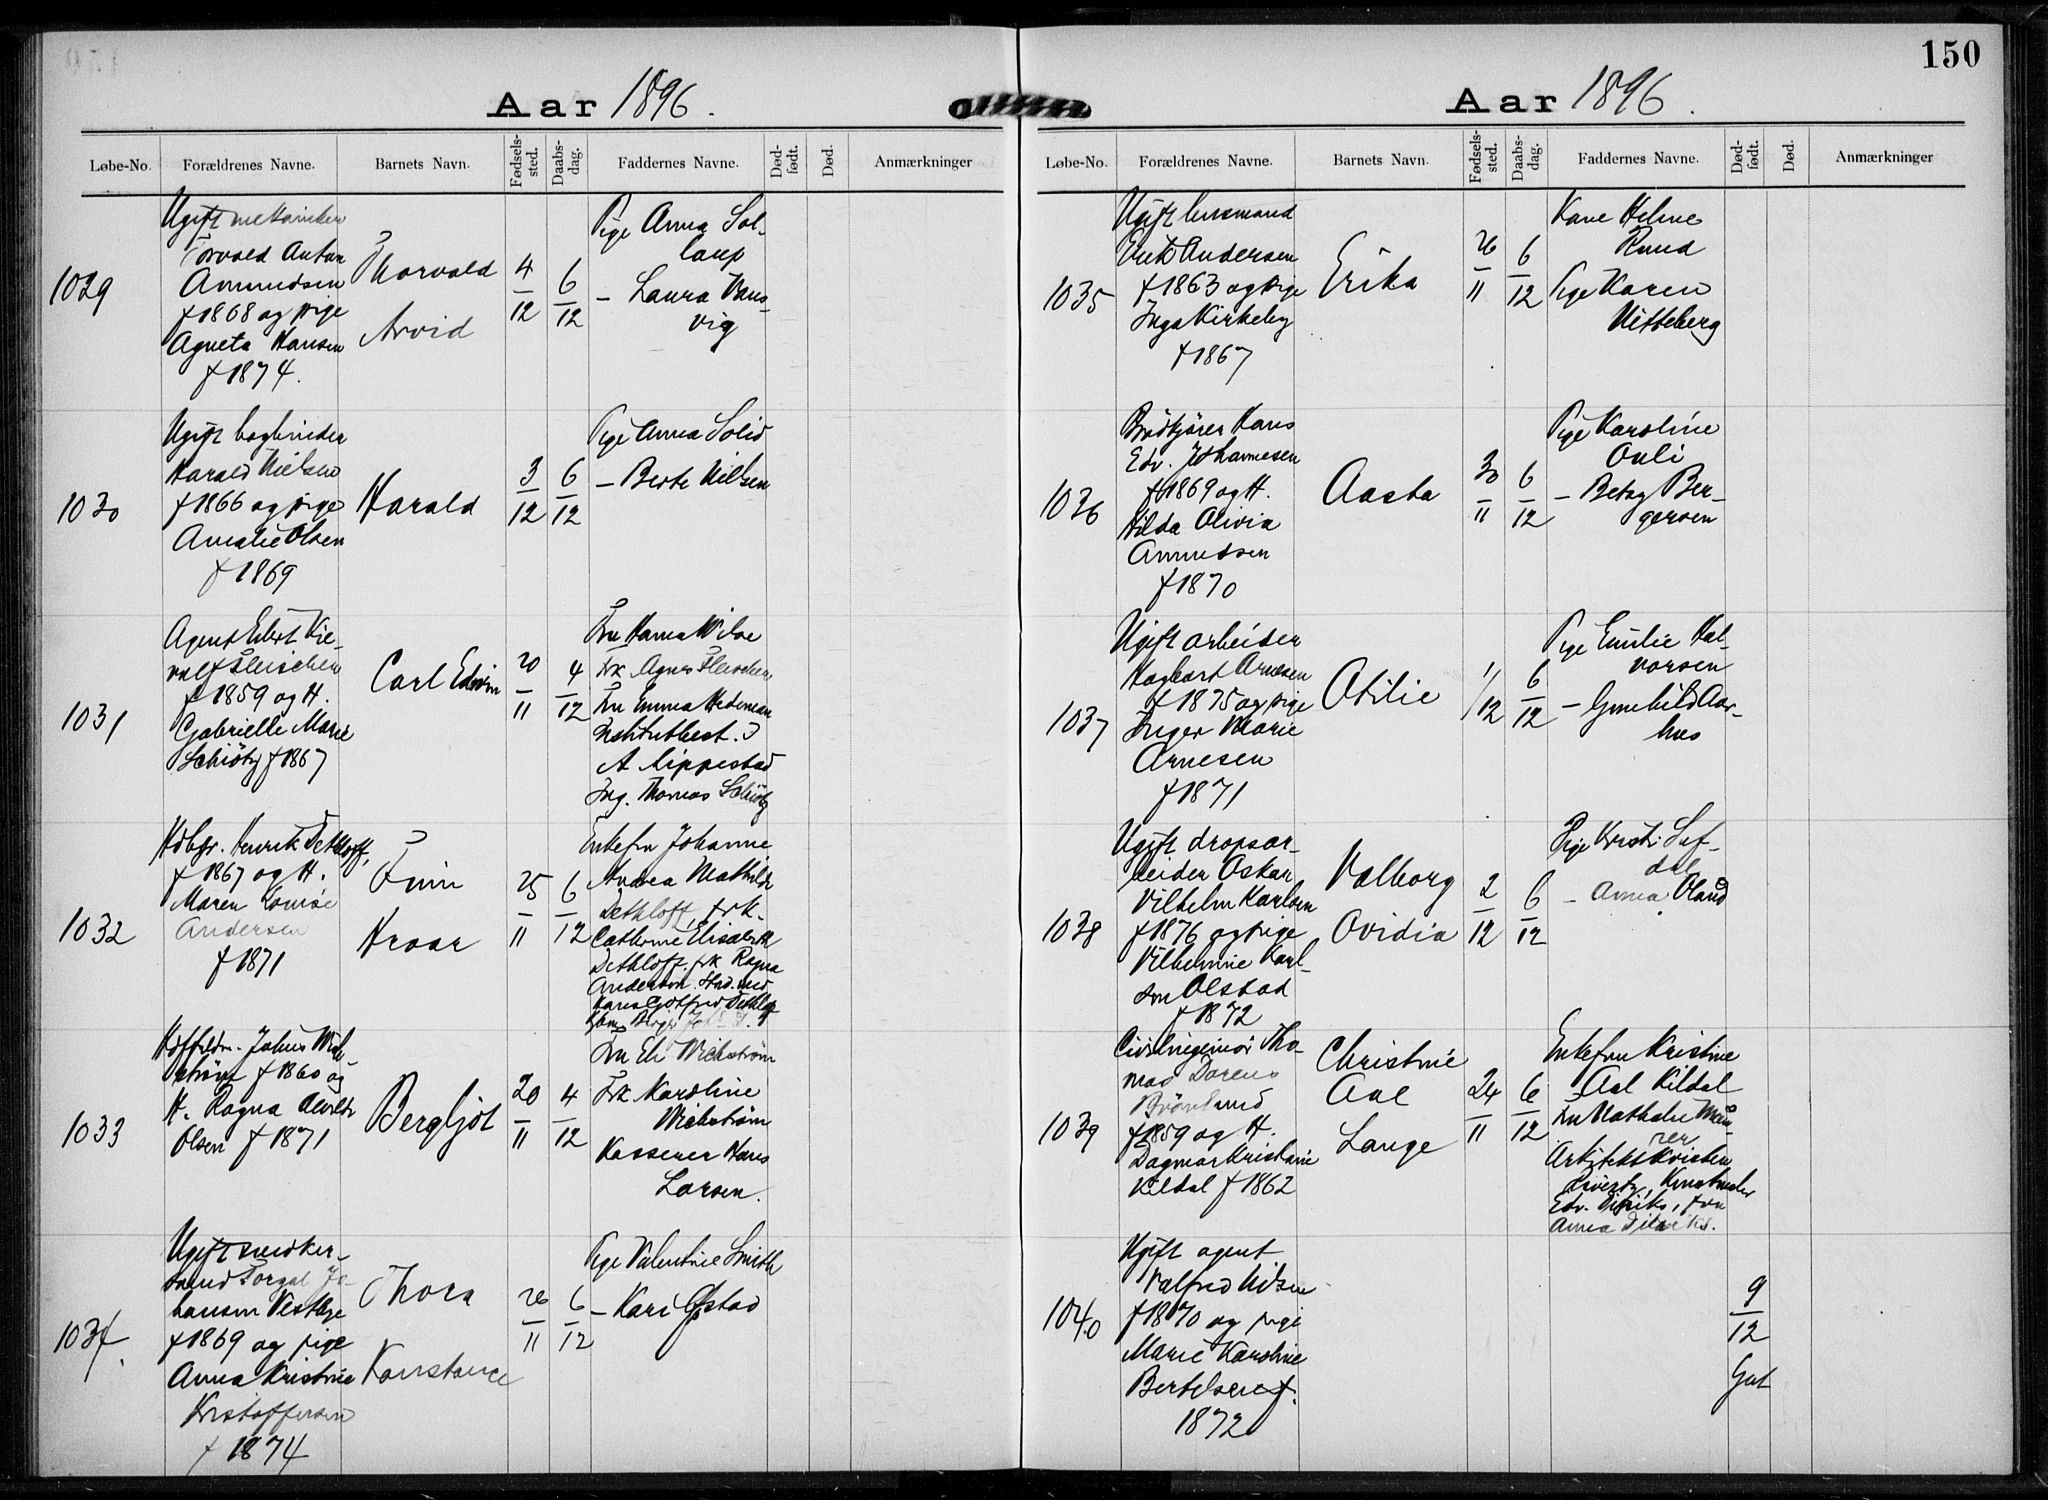 Aar 1896.
Løbe-No. Forældrenes Navne. Barnets Navn. Fødsels-sted. Daabs-dag. Faddernes Navne. Død-født. Død. Anmærkninger
1029
Ugift mekaniker
Torvald Anton
Amundsen
f 1868 og pige
Agneta Hansen
f 1874.
Thorvald
Arvid
4/12
6/12
Pige Anna Sol-
laup
– Laura Vans-
vig
1030
Ugift bogbinder
Harald Nielsen
f 1866 og pige
Amalie Olsen
f 1869
Harald
3/12
6/12
Pige Anna Solid
– Berte Nilsen
1031
Agent Ebert Kie-
rulf Fleischer
f 1859 og H.
Gabrielle Marie
Schiötz f 1867
Carl Edvin
20/11
4/12
Fru Hanna
Frk Agnes Fleischer
Fru Emma Hedeman
Institutbest.
A Lippestad
Ing. Thomas Schiötz
1032
Hdbgr. Henrik Dethloff,
f 1867 og H.
Maren Louise
Andersen
f 1871
Finn
Hroar
25/11
6/12
Enkefru Johanne
Andrea Mathilde
Dethloff, frk.
Catherine Elisabeth
Dethloff. frk Ragna
Andersen. Stud. med
Hans Gotfred Dethloff
1033
Julius Wick-
strøm f 1860 og
H. Ragna Alvilde
Olsen f 1871
Bergljot
20/11
4/12
Fru Eli Wickstrøm
Frk Karoline
Wickstrøm
Kasserer Hans
Larsen.
1034.
Ugift snedker-
svend Torgal Jo-
hansen
f 1869 og pige
Anna Kristine
Kristoffersen
f 1874
Thora
Konstance
26/11
6/12
Pige Valentine Smith
– Kari Opstad
150
Aar 1896.
Løbe-No. Forældrenes Navne. Barnets Navn. Fødsels-sted. Daabs-dag. Faddernes Navne. Død-født. Død. Anmærkninger
1035
Ugift husmand
Erik Andersen
f 1863 og pige
Inga Kirkeby
f 1867
Erika
26/11
6/12
Kone Helene
Rund
Pige Karen
Uitteberg
1036
Brødkjører Hans
Edv. Johannesen
f 1869 og H.
Hilda Olivia
Amundsen
f 1870
Aasta
30/11
6/12
Pige Karoline
Onli
– Betsy Ber-
gersen
1037
Ugift arbeider
Hagbart Arnesen
f 1875 og pige
Inger Marie
Arnesen
f 1871
Otilie
1/12
6/12
Pige Emilie Hal-
vorsen
– Gunhild Aar-
hus
1038
Ugift dropsar-
beider Oskar
Vilhelm Karlsen
f 1876 og pige
Vilhelmine Karl-
sen Olstad
f 1872
Valborg
Ovidia
2/12
6/12
Pige Kristi Suf-
dal
– Anna Oland
1039
Civilingeniør Tho-
mas Dorenus
f 1859 og H.
Dagmar Kristine
Kildal f 1862
Christine
Aal
Lange
24/11
6/12
Enkefru Kristine
Aal Kildal
Fru Nathalie
Arkitekt Kristen
Rivertz, Kunstmaler
Edv. Diriks, fru
Anna Diriks.
1040
Ugift agent
Valfred Nilsen
f 1870 og pige
Marie Karoline
Bertelsen f.
1872
9/12
Gut